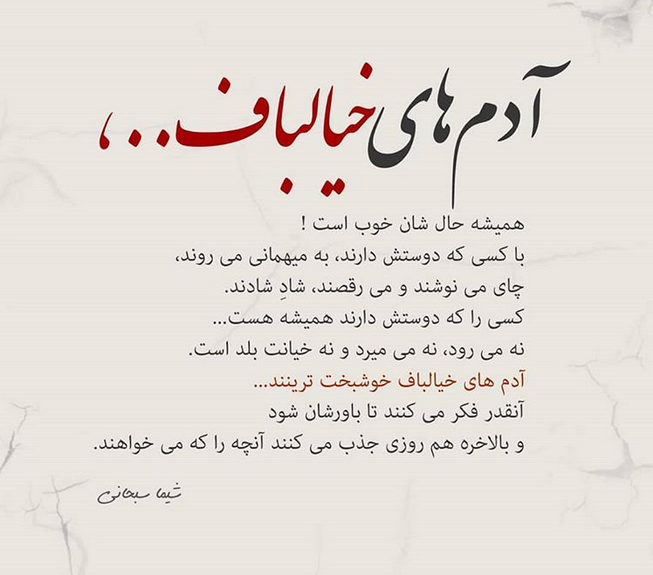 آدم های خیالباف..،
همیشه حال شان خوب است !
با کسی که دوستش دارند، به میهمانی می روند،
چای می نوشند و می رقصند، شادِ شادند.
کسی را که دوستش دارند همیشه هست...
نه می رود، نه می میرد و نه خیانت بلد است.
آدم های خیالباف خوشبخت ترینند...
آنقدر فکر می کنند تا باورشان شود
و بالاخره هم روزی جذب می کنند آنچه را که می خواهند.
شیما سبحانی